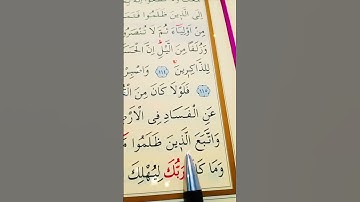 إِلَى الَّذِينَ ظَلَمُوا فَتَمَ
مِنْ أَوْلِيَاءَ ثُمَّ لَا تُنْصَرُ
وَزُلَفًا مِنَ اللَّيْلِ إِنَّ الْحَسَ
لِلذَّاكِرِينَ ١١٤ وَاصْبِرْ
١١٥ فَلَوْلَا كَانَ مِنَ الْ
عَنِ الْفَسَادِ فِي الْأَرْ
وَاتَّبَعَ الَّذِينَ ظَلَمُوا مَ
وَمَا كَانَ رَبُّكَ لِيُهْلِكَ